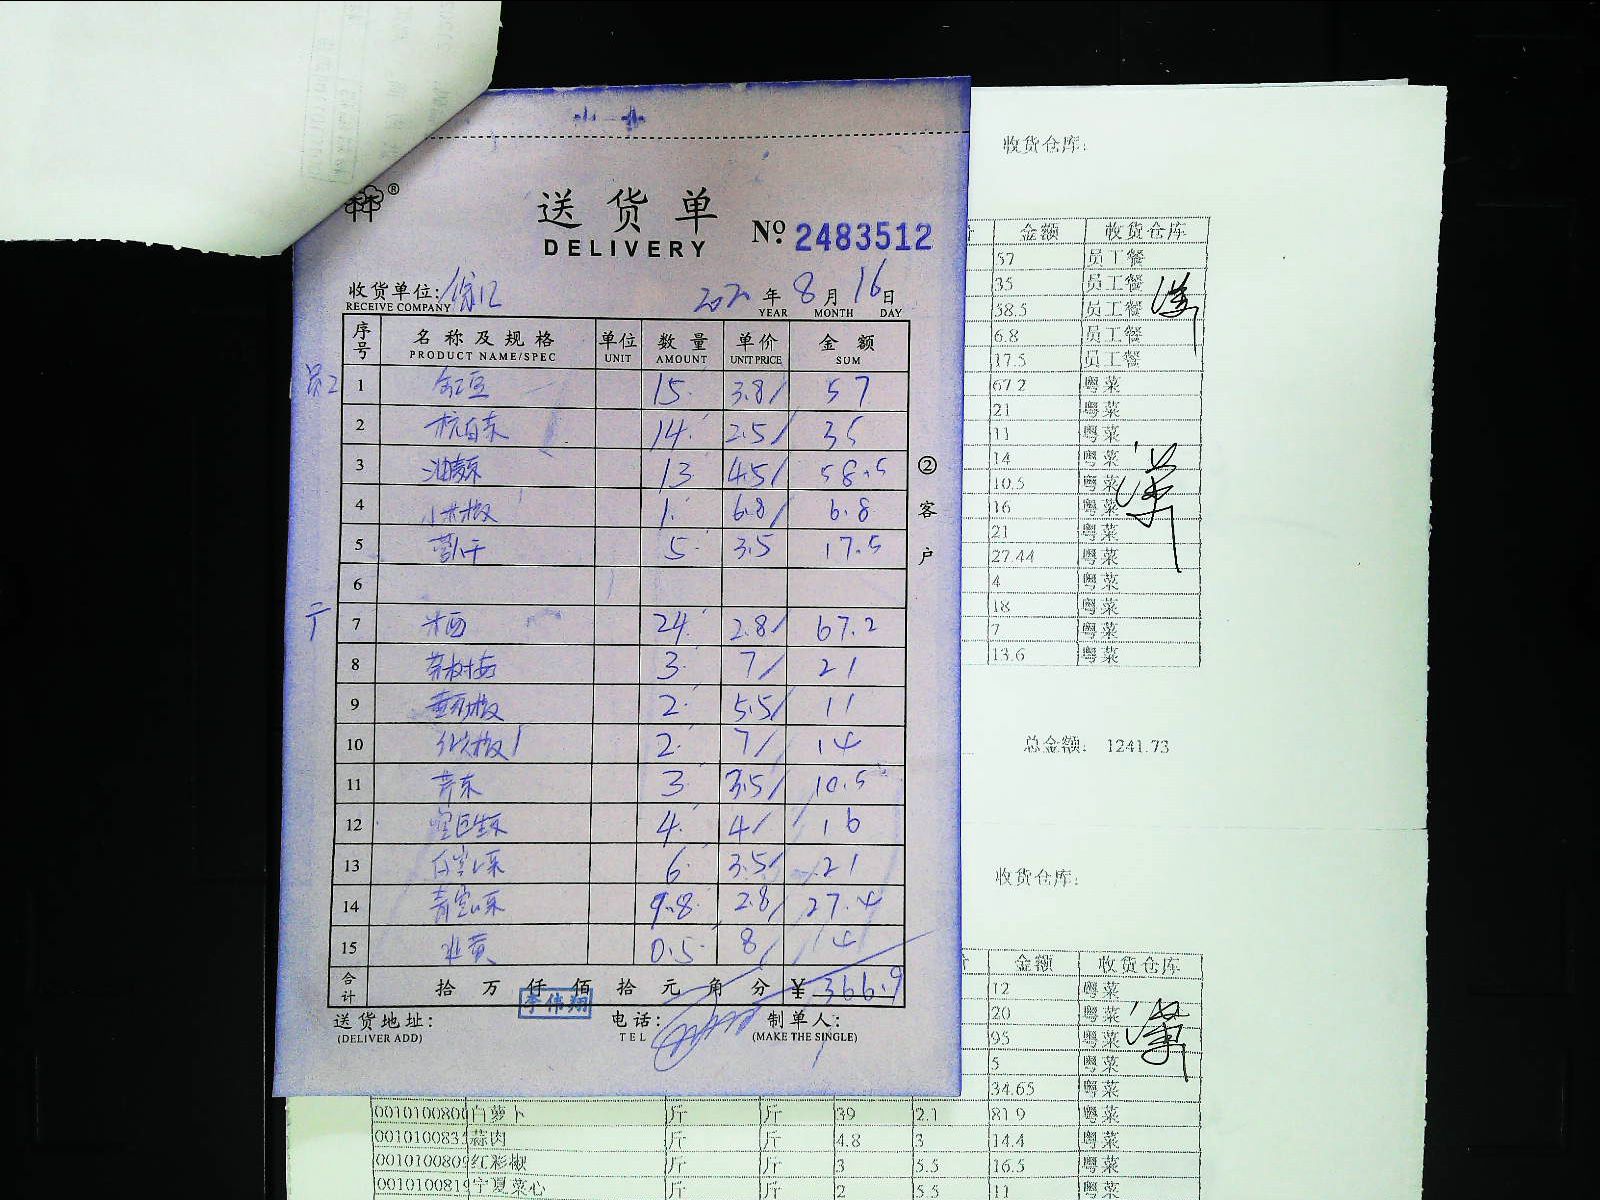 ®
送货单
DELIVERY
Nº 2483512
收货单位:
RECEIVE COMPANY
2020 年 8 月 16 日
YEAR MONTH DAY
序号 名称及规格 单位 数量 单价 金额
PRODUCT NAME/SPEC UNIT AMOUNT UNIT PRICE SUM
1 15 3.8 57
2 14 2.5 35
3 油麦菜 13 4.5 58.5
4 小米椒 1 6.8 6.8
5 5 3.5 17.5
6
7 24 2.8 67.2
8 茶树菇 3 7 21
9 2 5.5 11
10 2 7 14
11 芹菜 3 3.5 10.5
12 4 4 16
13 6 3.5 21
14 9.8 2.8 27.4
15 0.5 8 4
合计 拾 万 仟 佰 拾 元 角 分 ¥ 366.9
李伟翔
送货地址: 电话: 制单人:
(DELIVER ADD) TEL (MAKE THE SINGLE)
② 客户
收货仓库:
金额 收货仓库
57 员工餐
35 员工餐
38.5 员工餐
6.8 员工餐
17.5 员工餐
67.2 粤菜
21 粤菜
11 粤菜
14 粤菜
10.5 粤菜
16 粤菜
21 粤菜
27.44 粤菜
4 粤菜
18 粤菜
7 粤菜
13.6 粤菜
总金额: 1241.73
收货仓库:
金额 收货仓库
12 粤菜
20 粤菜
95 粤菜
5 粤菜
34.65 粤菜
白萝卜 斤 斤 39 2.1 81.9 粤菜
蒜肉 斤 斤 4.8 3 14.4 粤菜
红彩椒 斤 斤 3 5.5 16.5 粤菜
宁夏菜心 斤 斤 2 5.5 11 粤菜